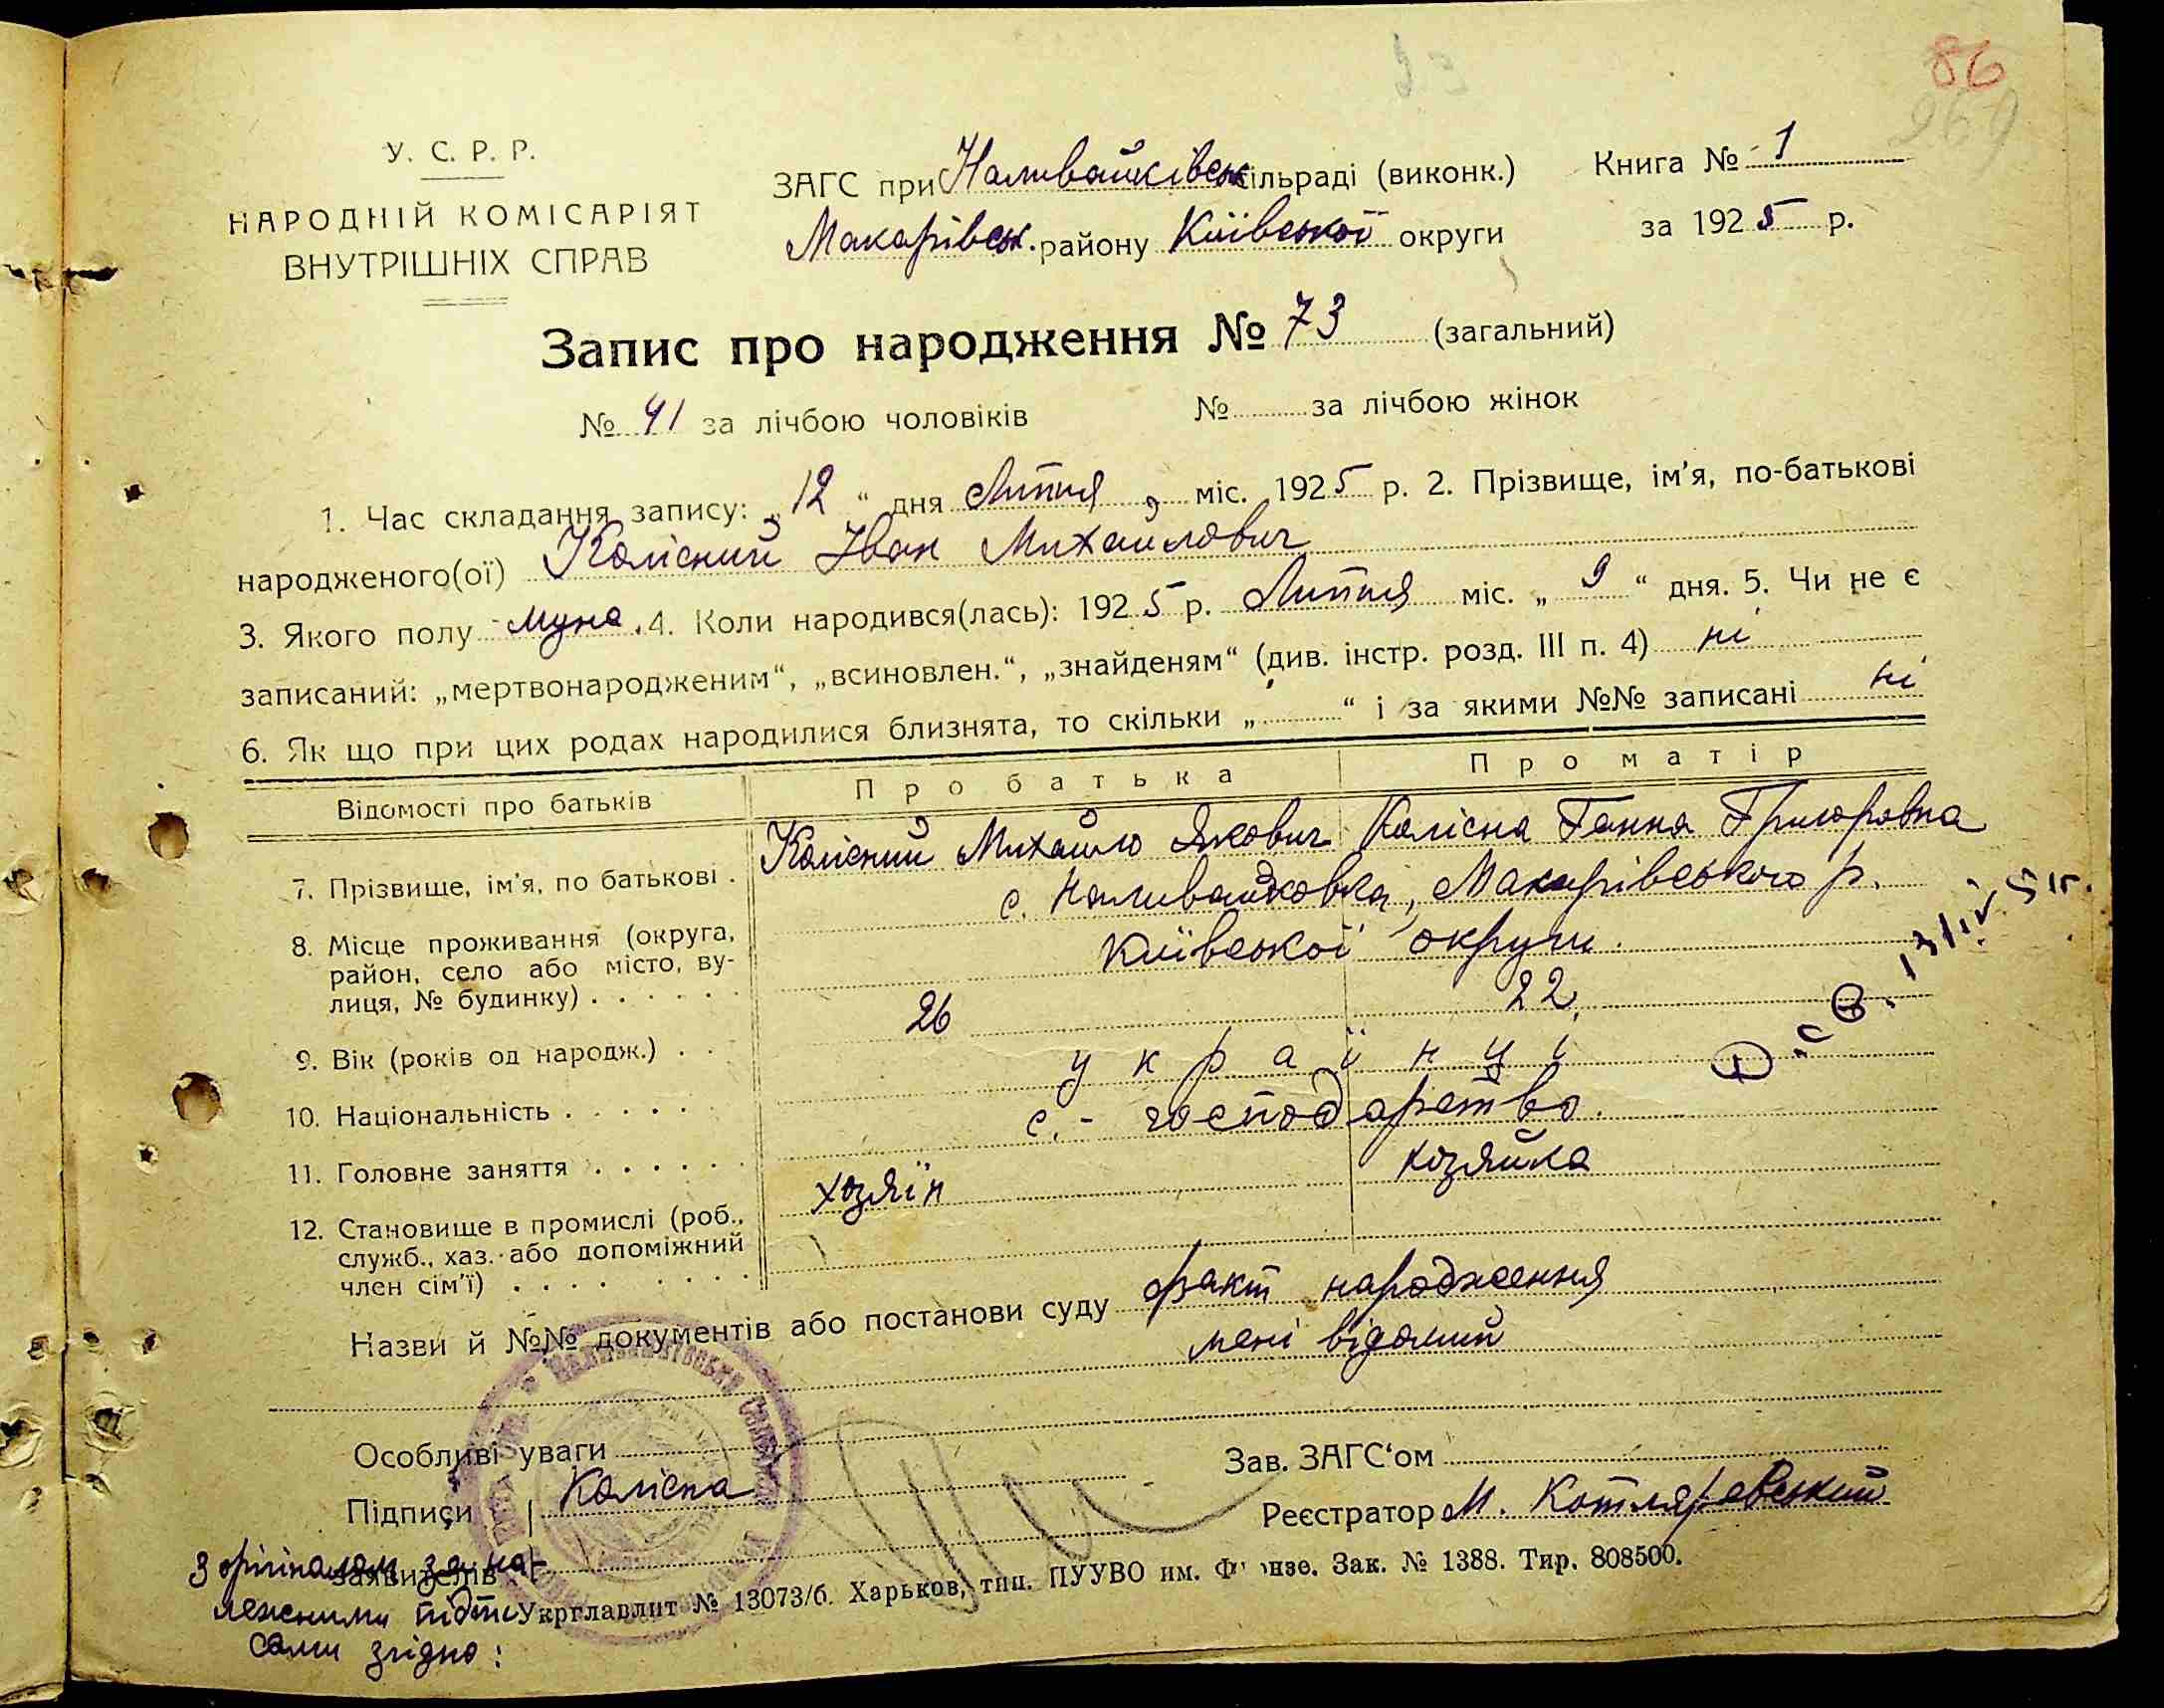 86
269
У. С. Р. Р.
НАРОДНІЙ КОМІСАРІЯТ
ВНУТРІШНІХ СПРАВ
ЗАГС при Наливайківськ сільраді (виконк.)
Макарівськ. району Київської округи
Книга № 1
за 1925 р.
Запис про народження № 73 (загальний)
№ 41 за лічбою чоловіків № за лічбою жінок
1. Час складання запису: „12“ дня Липня міс. 1925 р. 2. Прізвище, ім'я, по-батькові
народженого(ої) Колісний Іван Михайлович
3. Якого полу муж. 4. Коли народився(лась): 1925 р. Липня міс. „9“ дня. 5. Чи не є
записаний: „мертвонародженим“, „всиновлен.“, „знайденям“ (див. інстр. розд. III п. 4) ні
6. Як що при цих родах народилися близнята, то скільки „ “ і за якими №№ записані ні
Відомості про батьків Про батька Про матір
7. Прізвище, ім'я, по батькові . Колісний Михайло Якович Колісна Ганна Григоровна
8. Місце проживання (округа, район, село або місто, вулиця, № будинку) . . . . . . с. Наливайковка, Макарівського р.
Київської округи.
9. Вік (років од народж.) . . 26 22
10. Національність . . . . . . українці
11. Головне заняття . . . . . . с.-господарство.
12. Становище в промислі (роб., служб., хаз. або допоміжний член сім'ї) . . . . . . . . хозяїн хозяйка
Назви й №№ документів або постанови суду факт народження
мені відомий
Особливі уваги
Зав. ЗАГС'ом
Підписи Колісна
Реєстратор М. Котляревський
заявителів
З орігіналом за на-
лежними підпи-
сами згідно:
Укрглавлит № 13073/б. Харьков, тип. ПУУВО им. Фрунзе. Зак. № 1388. Тир. 808500.